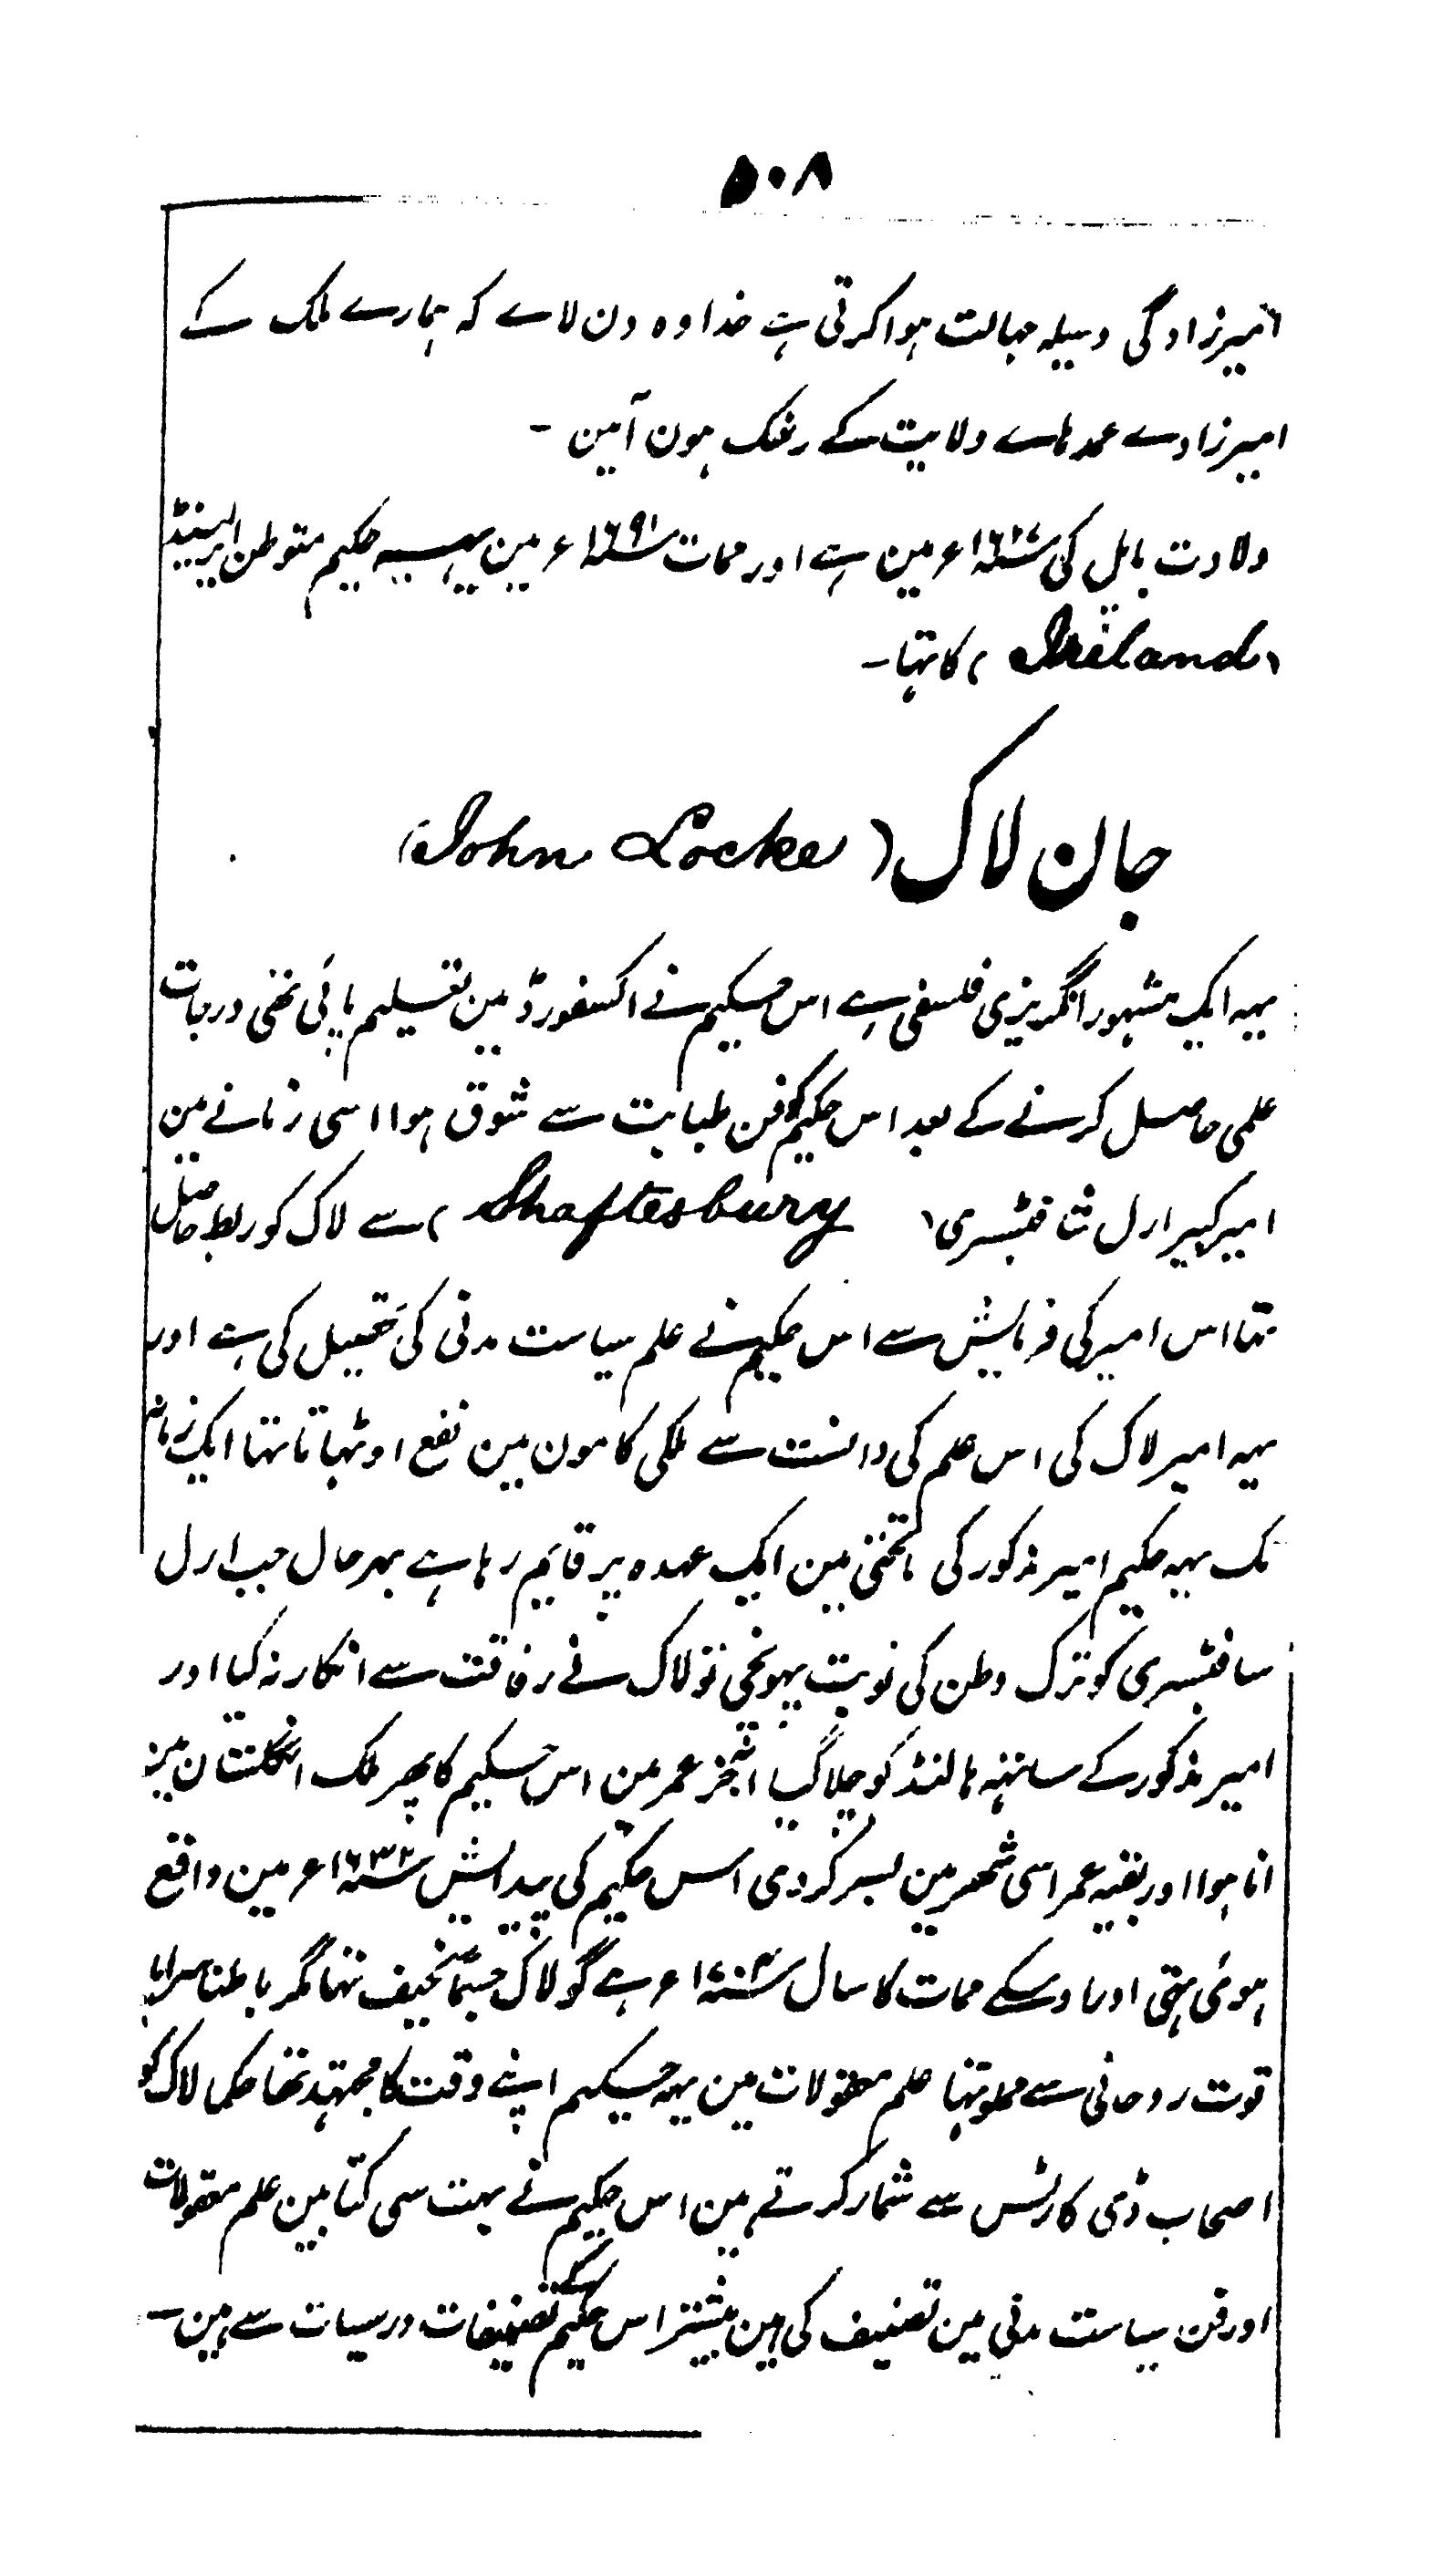 ۵۰۸
امیرزادگی وسیلہ جہالت ہوا کرتی ہے خدا وہ دن لاے کہ ہمارے ملک کے
امیرزادے عمدہاے ولایت کے رشک ہون آمین -
ولادت بایل کی سنہ ۱۶۲۷ء مین ہے اور ممات سنہ ۱۶۹۱ء مین یہہ حکیم متوطن ایرلینڈ
(Ireland) کا تہا -
جان لاک (John Locke)
یہہ ایک مشہور انگریزی فلسفی ہے اس حکیم نے اکسفورڈ مین تعلیم پائی تھی درجات
علمی حاصل کرنے کے بعد اس حکیم کو فن طبابت سے شوق ہوا اسی زمانے مین
امیر کبیر ارل شافٹبسری (Shaftesbury) سے لاک کو ربط حاصل
تہا اس امیر کی فرمایش سے اس حکیم نے علم سیاست مدنی کی تحصیل کی ہے اور
یہہ امیر لاک کی اس علم کی دانست سے ملکی کامون مین نفع اوٹہاتا تہا ایک زمانہ
تک یہہ حکیم امیر مذکور کی ماتحتی مین ایک عہدہ پر قایم رہا ہے بہرحال جب ارل
سافٹبسری کو ترک وطن کی نوبت پہونچی تو لاک نے رفاقت سے انکار نہ کیا اور
امیر مذکور کے ساتہہ ہالنڈ کو چلا گیا آخر عمر مین اس حکیم کا پھر ملک انگلستان مین
انا ہوا اور بقیہ عمر اسی شھر مین بسر کر دی اس حکیم کی پیدایش سنہ ۱۶۳۲ء مین واقع
ہوئی تہی اور اوسکے ممات کا سال سنہ ۱۷۰۴ء ہے گو لاک جسماً نحیف تہا مگر باطناً سراپا
قوت روحانی سے مملو تہا علم معقولات مین یہہ حکیم اپنے وقت کا مجتہد تھا حکما لاک کو
اصحاب ڈی کارٹس سے شمار کرتے ہین اس حکیم نے بہت سی کتابین علم معقولات
اور فن سیاست مدنی مین تصنیف کی ہین بیشتر اس حکیم کے تصنیفات درسیات سے ہین -